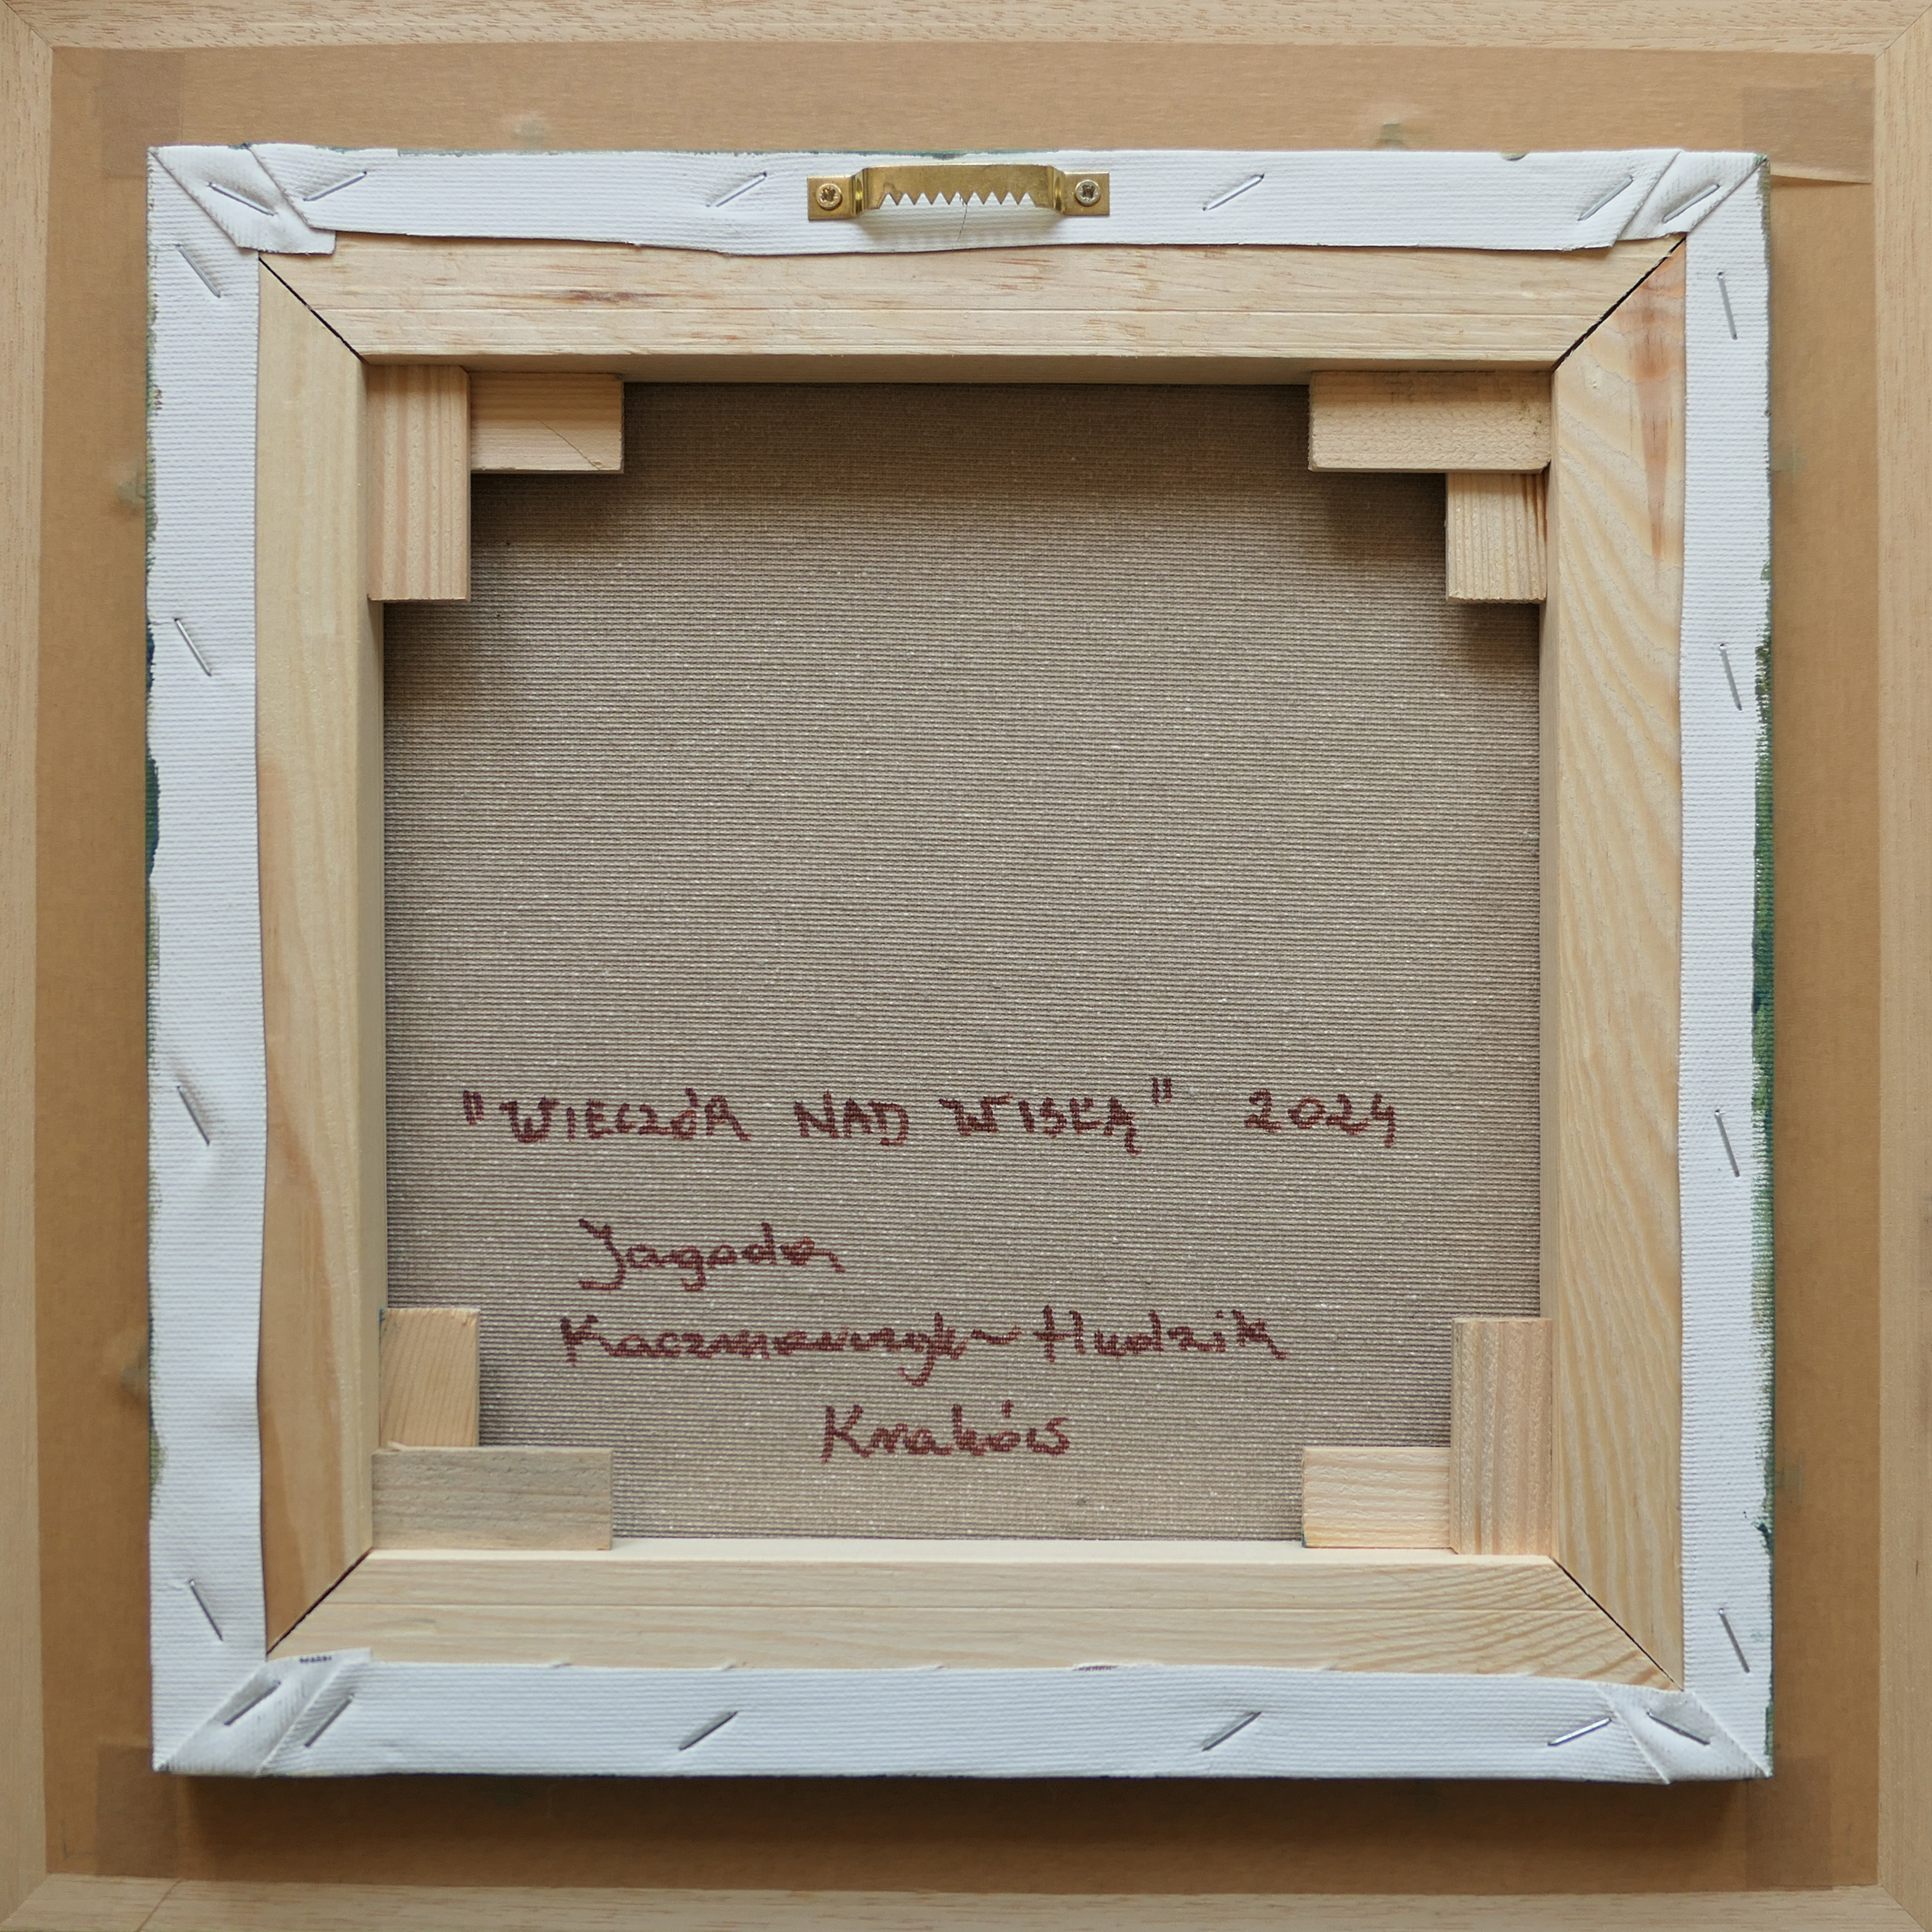 "WIECZÓR NAD WISŁĄ" 2024
Jagoda
Kaczmarczyk-Hudzik
Kraków